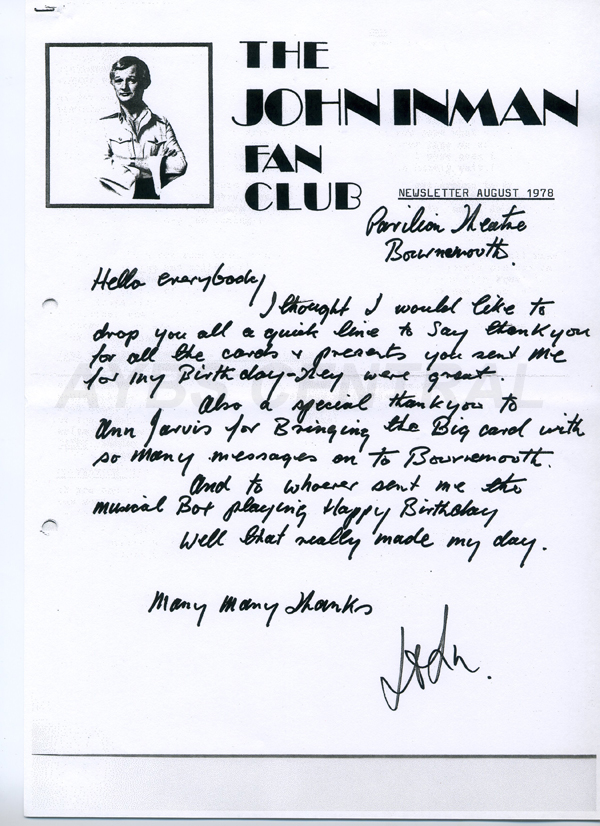 THE
JOHN INMAN
FAN
CLUB
NEWSLETTER AUGUST 1978
Pavilion Theatre
Bournemouth.
Hello everybody
I thought I would like to
drop you all a quick line to say thankyou
for all the cards + presents you sent me
for my Birthday - They were great
AYBS CENTRAL
Also a special thankyou to
Ann Jarvis for Bringing the Big card with
so many messages on to Bournemouth.
And to whoever sent me the
musical Box playing Happy Birthday
Well that really made my day.
Many Many Thanks
John.